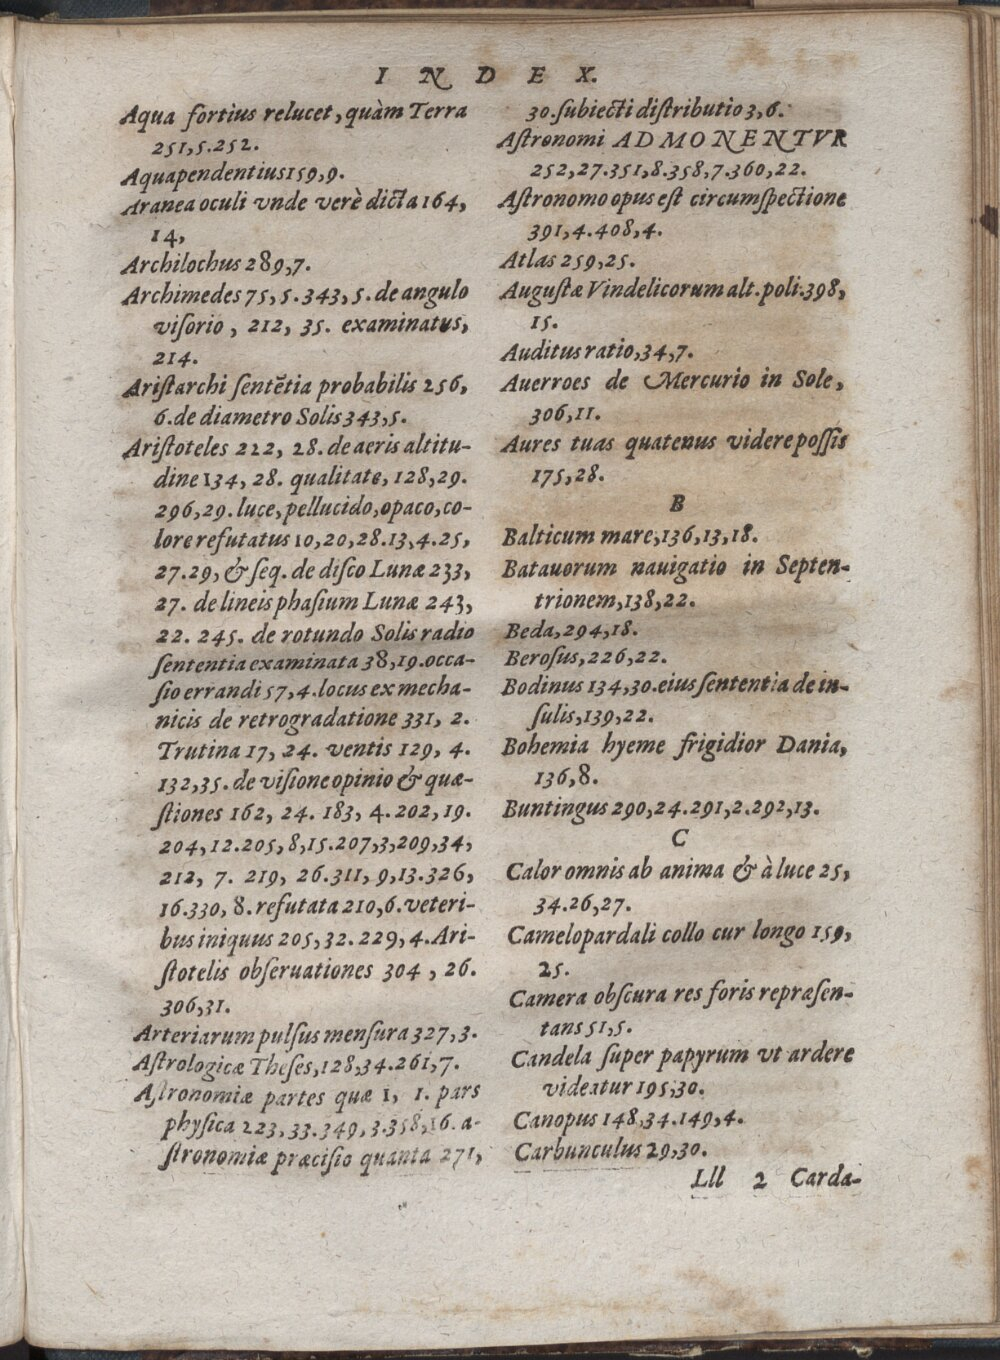 INDEX.
Aqua fortius relucet, quàm Terra
251,5.252.
Aquapendentius 159,9.
Aranea oculi vnde verè dicta 164,
14,
Archilochus 289,7.
Archimedes 75, 5. 343, 5. de angulo
viſorio, 212, 35. examinatus,
214.
Ariſtarchi ſentẽtia probabilis 256,
6. de diametro Solis 343,5.
Ariſtoteles 222, 28. de aeris altitu-
dine 134, 28. qualitate, 128,29.
296,29. luce, pellucido, opaco, co-
lore refutatus 10,20,28.13,4.25,
27.29, & ſeq. de diſco Lunæ 233,
27. de lineis phaſium Lunæ 243,
22. 245. de rotundo Solis radio
ſententia examinata 38,19. occa-
ſio errandi 57,4. locus ex mecha-
nicis de retrogradatione 331, 2.
Trutina 17, 24. ventis 129, 4.
132,35. de viſione opinio & quæ-
ſtiones 162, 24. 183, 4. 202, 19.
204,12.205,8,15.207,3,209,34,
212, 7. 219, 26.311, 9,13.326,
16.330, 8. refutata 210,6. veteri-
bus iniquus 205,32. 229,4. Ari-
ſtotelis obſeruationes 304, 26.
306,31.
Arteriarum pulſus menſura 327,3.
Aſtrologicæ Theſes,128,34.261,7.
Aſtronomiæ partes quæ 1, 1. pars
phyſica 223,33.349,3.358,16. a-
ſtronomiæ præciſio quanta 271,
30. ſubiecti diſtributio 3,6.
Aſtronomi ADMONENTVR
252,27.351,8.358,7.360,22.
Aſtronomo opus eſt circumſpectione
391,4.408,4.
Atlas 259,25.
Auguſtæ Vindelicorum alt. poli.398,
15.
Auditus ratio,34,7.
Auerroes de Mercurio in Sole,
306,11.
Aures tuas quatenus videre poſſis
175,28.
B
Balticum mare,136,13,18.
Batauorum nauigatio in Septen-
trionem,138,22.
Beda,294,18.
Beroſus,226,22.
Bodinus 134,30. eius ſententia de in-
ſulis,139,22.
Bohemia hyeme frigidior Dania,
136,8.
Buntingus 290,24.291,2.292,13.
C
Calor omnis ab anima & à luce 25,
34.26,27.
Camelopardali collo cur longo 159,
25.
Camera obſcura res foris repræſen-
tans 51,5.
Candela ſuper papyrum vt ardere
videatur 195,30.
Canopus 148,34.149,4.
Carbunculus 29,30.
Lll 2 Carda-